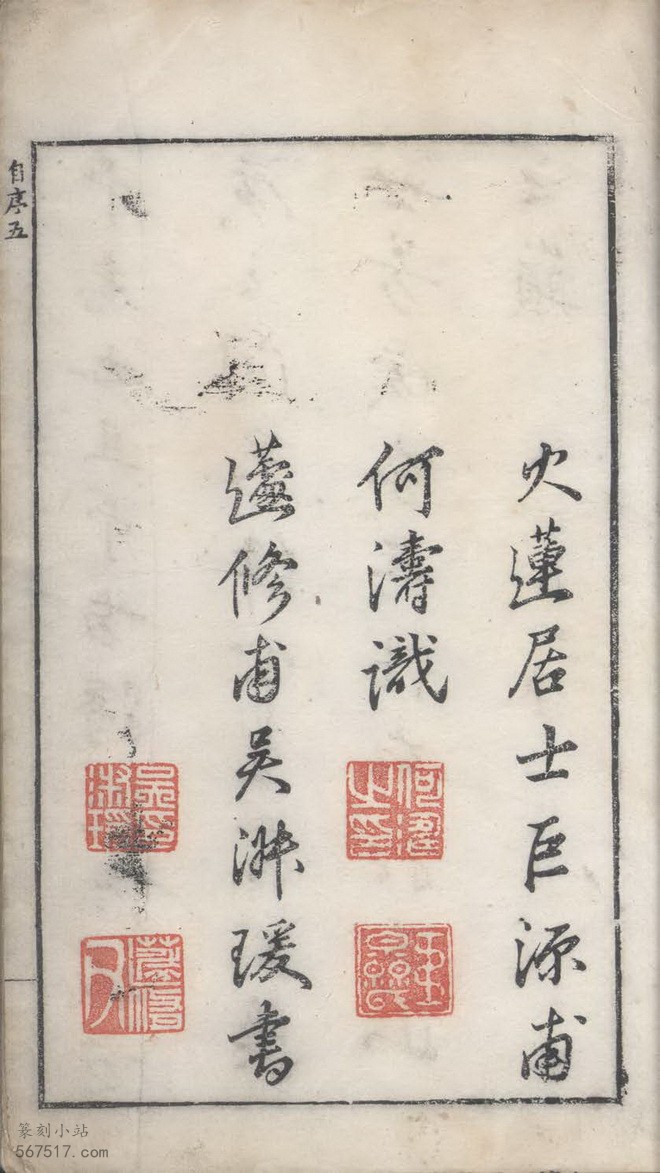 自序五
火蓮居士巨源甫
何濤識
修甫吴瑗書
何濤之印
篆刻小站
567517.com